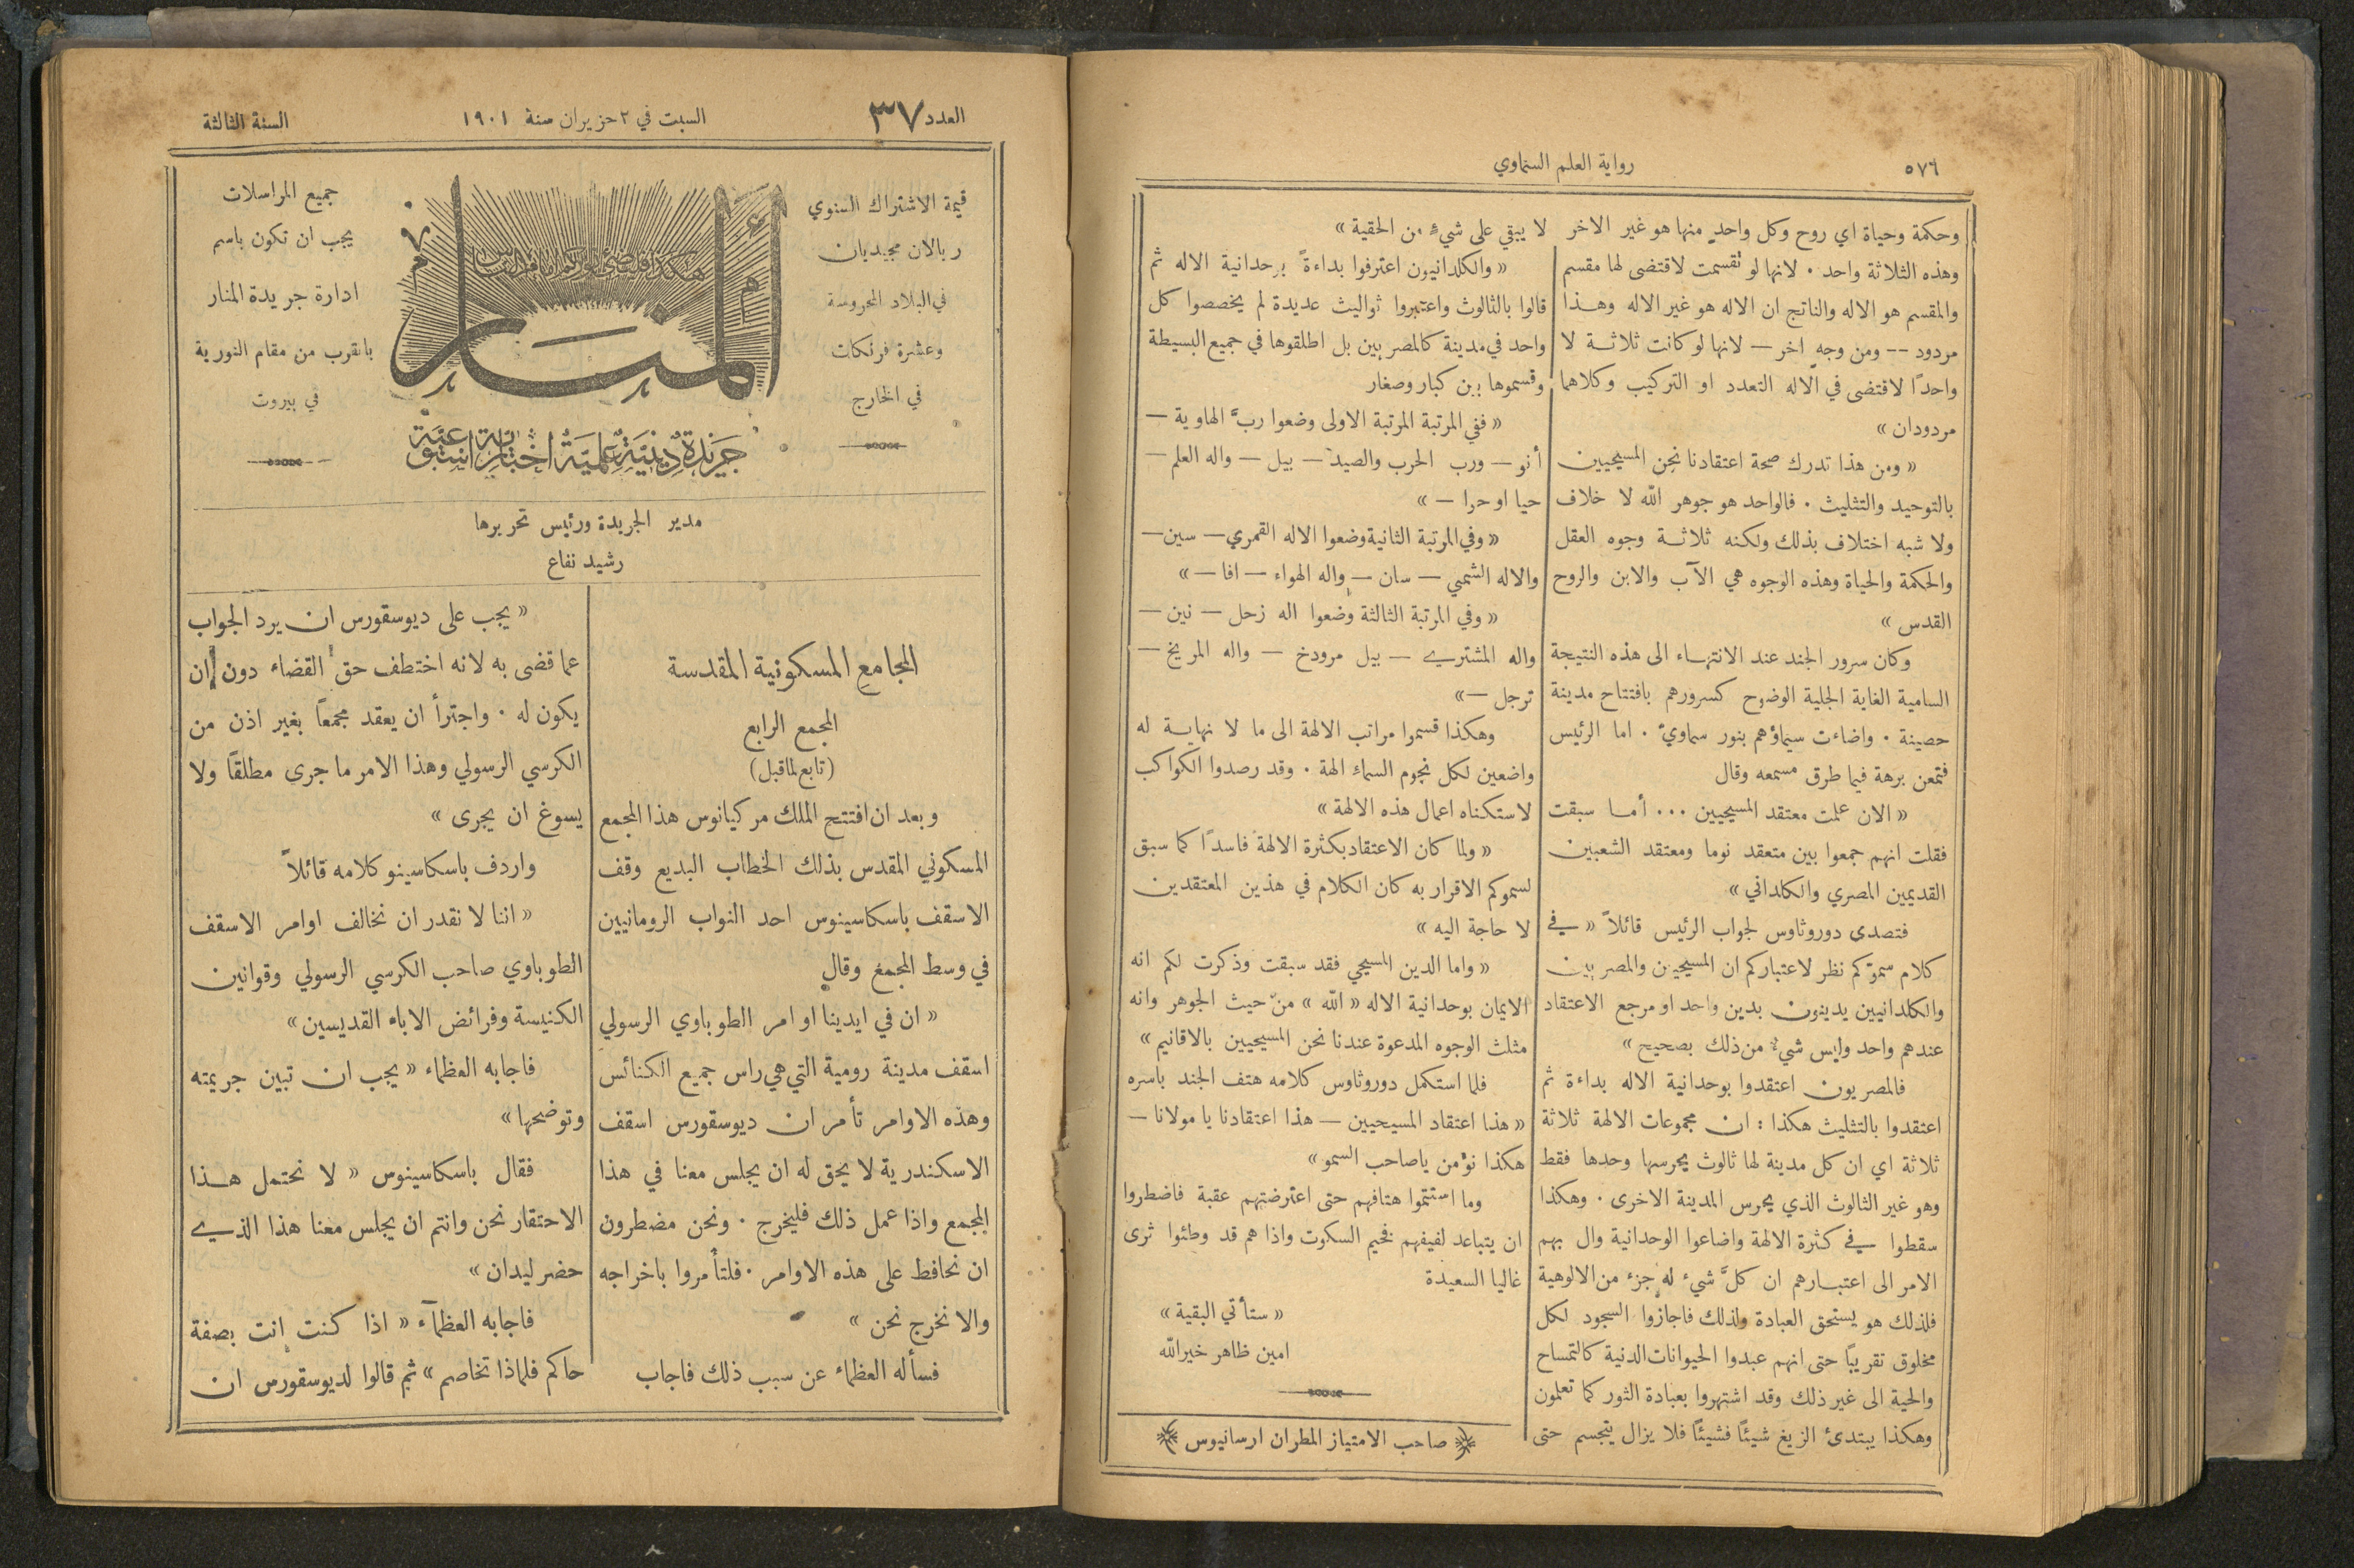 ٥٧٦
رواية العلم السماوي
وحكمة وحياة اي روح وكل واحدٍ منها هو غير الاخر
وهذه الثلاثة واحد . لانها لو تقسمت لاقتضى لها مقسم
والمقسم هو الاله والناتج ان الاله هو غير الاله وهـذا
مردود -- ومن وجهٍ اخر — لانها لو كانت ثلاثـة لا
واحدًا لاقتضى في الاله التعدد او التركيب وكلاهما
مردودان »
« ومن هذا تدرك صحة اعتقادنا نحن المسيحيين
بالتوحيد والتثليث . فالواحد هو جوهر الله لا خلاف
ولا شبه اختلاف بذلك ولكنه ثلاثـة وجوه العقل
والحكمة والحياة وهذه الوجوه هي الآب والابن والروح
القدس »
وكان سرور الجند عند الانتهـاء الى هذه النتيجة
السامية الغاية الجلية الوضوح كسرورهم بافتتاح مدينة
حصينة . واضاءت سيماؤهم بنور سماويّ . اما الرئيس
فتمعن برهة فيما طرق مسمعه وقال
« الان علمت معتقد المسيحيين ... أمـا سبقت
فقلت انهم جمعوا بين متعقد نوما ومعتقد الشعبين
القديمين المصري والكلداني »
فتصدى دوروثاوس لجواب الرئيس قائلاً « في
كلام سموّكم نظر لاعتباركم ان المسيحيين والمصريين
والكلدانيين يدينون بدين واحد او مرجع الاعتقاد
عندهم واحد وليس شيءٌ من ذلك بصحيح »
فالمصريون اعتقدوا بوحدانية الاله بداءة ثم
اعتقدوا بالتثليث هكذا : ان مجموعات الالهة ثلاثة
ثلاثة اي ان كل مدينة لها ثالوث يحرسها وحدها فقط
وهو غير الثالوث الذي يحرس المدينة الاخرى . وهكذا
سقطوا في كثرة الالهة واضاعوا الوحدانية وال بهم
الامر الى اعتبـارهم ان كلَّ شيء له جزء من الالوهية
فلذلك هو يستحق العبادة ولذلك فاجازوا السجود لكل
مخلوق تقريبًا حتى انهم عبدوا الحيوانات الدنية كالتمساح
والحية الى غير ذلك وقد اشتهروا بعبادة الثور كما تعلمون
وهكذا يبتدئ الزيغ شيئًا فشيئًا فلا يزال يتجسم حتى
لا يبقي على شيءٍ من الحقية »
« والكلدانيون اعترفوا بداءةً بوحدانية الاله ثم
قالوا بالثالوث واعتبروا ثواليث عديدة لم يخصصوا كل
واحد في مدينة كالمصريين بل اطلقوها في جميع البسيطة
وقسموها بين كبار وصغار
« ففي المرتبة المرتبة الاولى وضعوا ربَّ الهاوية —
أنو — ورب الحرب والصيد — بيل — واله العلم —
حيا او حرا — »
« وفي المرتبة الثانية وضعوا الاله القمري — سين —
والاله الشمسي — سان — واله الهواء — افا — »
« وفي المرتبة الثالثة وضعوا اله زحل — نين —
واله المشتري — بيل مرودخ — واله المريخ —
ترجل — »
وهكذا قسموا مراتب الالهة الى ما لا نهايـة له
واضعين لكل نجوم السماء الهة . وقد رصدوا الكواكب
لاستكناه اعمال هذه الالهة »
« ولما كان الاعتقاد بكثرة الالهة فاسدًا كما سبق
لسموكم الاقرار به كان الكلام في هذين المعتقدين
لا حاجة اليه »
« واما الدين المسيحي فقد سبقت وذكرت لكم انه
الايمان بوحدانية الاله « الله » من حيث الجوهر وانه
مثلث الوجوه المدعوة عندنا نحن المسيحيين بالاقانيم »
فلما استكمل دوروثاوس كلامه هتف الجند باسره
« هذا اعتقاد المسيحيين — هذا اعتقادنا يا مولانا —
هكذا نؤمن ياصاحب السمو »
وما استتموا هتافهم حتى اعترضتهم عقبة فاضطروا
ان يتباعد لفيفهم فخيم السكوت واذا هم قد وطئوا ثرى
غاليا السعيدة
« ستأتي البقية »
امين ظاهر خيرالله
صاحب الامتياز المطران ارسانيوس
العدد ٣٧
السبت في ٢ حزيران سنة ١٩٠١
السنة الثالثة
قيمة الاشتراك السنوي
ريالان مجيديان
في البلاد المحروسة
وعشرة فرنكات
في الخارج
المنار
جريدة دينية علمية اخبارية اسبوعية
جميع المراسلات
يجب ان تكون باسم
ادارة جريدة المنار
بالقرب من مقام النورية
في بيروت
مدير الجريدة ورئيس تحريرها
رشيد نفاع
المجامع المسكونية المقدسة
المجمع الرابع
(تابع لما قبل)
وبعد ان افتتح الملك مركيانوس هذا المجمع
المسكوني المقدس بذلك الخطاب البديع وقف
الاسقف باسكاسينوس احد النواب الرومانيين
في وسط المجمع وقال
« ان في ايدينا اوامر الطوباوي الرسولي
اسقف مدينة رومية التي هي راس جميع الكنائس
وهذه الاوامر تأمر ان ديوسقورس اسقف
الاسكندرية لا يحق له ان يجلس معنا في هذا
المجمع واذا عمل ذلك فليخرج . ونحن مضطرون
ان نحافظ على هذه الاوامر . فلتأمروا باخراجه
والا نخرج نحن »
فسأله العظماء عن سبب ذلك فاجاب
« يجب على ديوسقورس ان يرد الجواب
عما قضى به لانه اختطف حق القضاء دون ان
يكون له . واجترأ ان يعقد مجمعاً بغير اذن من
الكرسي الرسولي وهذا الامر ما جرى مطلقاً ولا
يسوغ ان يجرى »
واردف باسكاسينو كلامه قائلاً
« اننا لا نقدر ان نخالف اوامر الاسقف
الطوباوي صاحب الكرسي الرسولي وقوانين
الكنيسة وفرائض الاباء القديسين »
فاجابه العظماء « يجب ان تبين جريمته
وتوضحها »
فقال باسكاسينوس « لا نحتمل هـذا
الاحتقار نحن وانتم ان يجلس معنا هذا الذي
حضر ليدان »
فاجابه العظمآء « اذا كنت انت بصفة
حاكم فلماذا تخاصم » ثم قالوا لديوسقورس ان